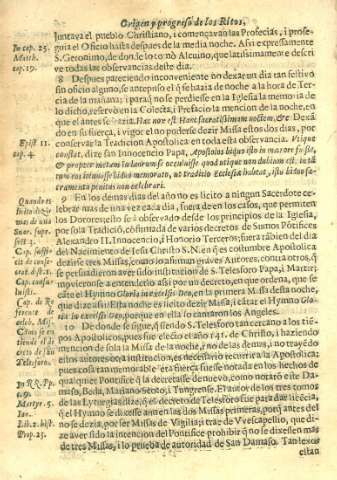 Origen y progreso de los Ritos,
Juntava el pueblo Christiano, i començavan las Profecias, i prose-
guia el Oficio hasta despues de la media noche. Assi expressamente
S. Geronimo, de donde lo tomò Alcuino, que latissimamente descri-
ve todas las observancias deste dia.
8 Despues pareciendo inconveniente no dexar un dia tan festivo
sin oficio alguno, se antepuso el q̃ se hazia de noche a la hora de Ter-
cia de la mañana; i para q̃ no se perdiesse en la Iglesia la memoria de
lo dicho, reservò en la Colecta, i Prefacio la mencion de la noche, en
que el antes se hazia. Hac nox est. Hanc sacratissimam noctem, &c. Dexã-
do en su fuerça, i vigor el no poderse dezir Missas estos dos dias, por
conservar la Tradicion Apostolica en toda esta observancia. Vtique
constat, dize san Innocencio Papa, Apostolos biduo isto in mœrore fuisse,
& propter metum Iudæorum se occuluisse. quod utique non dubium est, in tã-
tum eos ieiunasse biduo memorato, ut traditio Ecclesiæ habeat, isto biduo sa-
cramenta penitus non celebrari.
9 En los demas dias del año no es licito a ningun Sacerdote ce-
lebrar mas de una vez cada dia, fuera de en los casos, que permiten
los Dotores; esto se à observado desde los principios de la Iglesia,
por sola Tradiciõ, confirmada de varios decretos de Sumos Põtifices
Alexandro II. Innocencio, i Honorio Terceros; fuera del dia
del Nacimiento de Iesu Christo S. N. en q̃ es costumbre Apostolica
dezirse tres Missas, como lo afirman graves Autores, contra otros, q̃
se persuadieron aver sido institucion de S. Telesforo Papa, i Martir;
moviendose a entenderlo assi por un decreto, en que ordena, que se
cante el Hymno Gloria in excelsis Deo, en la primera Missa desta noche,
que dize assi: Esta noche es licito dezir Missa, i cãtar el Hymno Glo-
ria in excelsis Deo, porque en ella lo cantaron los Angeles.
10 De donde se sigue, q̃ siendo S. Telesforo tan cercano a los tiẽ-
pos Apostolicos, pues fue electo el año 141. de Christo, i haziendo
mencion de sola la Missa de la noche, i no de las demas, i no trayẽdo
ellos autores otra institucion, es necessario recurrir a la Apostolica;
pues cosa tan memorable era fuerça fuesse notada en los hechos de
qualquier Pontifice q̃ la decretasse de nuevo, como notarõ este Da-
maso, Beda, Mariano Scoto, i Tungrense. El autor de los tres tomos
de las Lyturgias dize, q̃ el decreto de Telesforo fue para dar licẽcia,
q̃ el Hymno se dixesse aun en las dos Missas primeras, porq̃ antes del
no se dezia, por ser Missas de Vigilia; i trae de Vvescapellio, que di-
ze aver sido la intencion del Pontifice prohibir q̃ no se dixessen mas
de tres Missas, i lo prueba de autoridad de San Damaso. Tan lexos
estan
In cap. 25.
Matth.
cap. 19.
Epist. 11.
cap. 4.